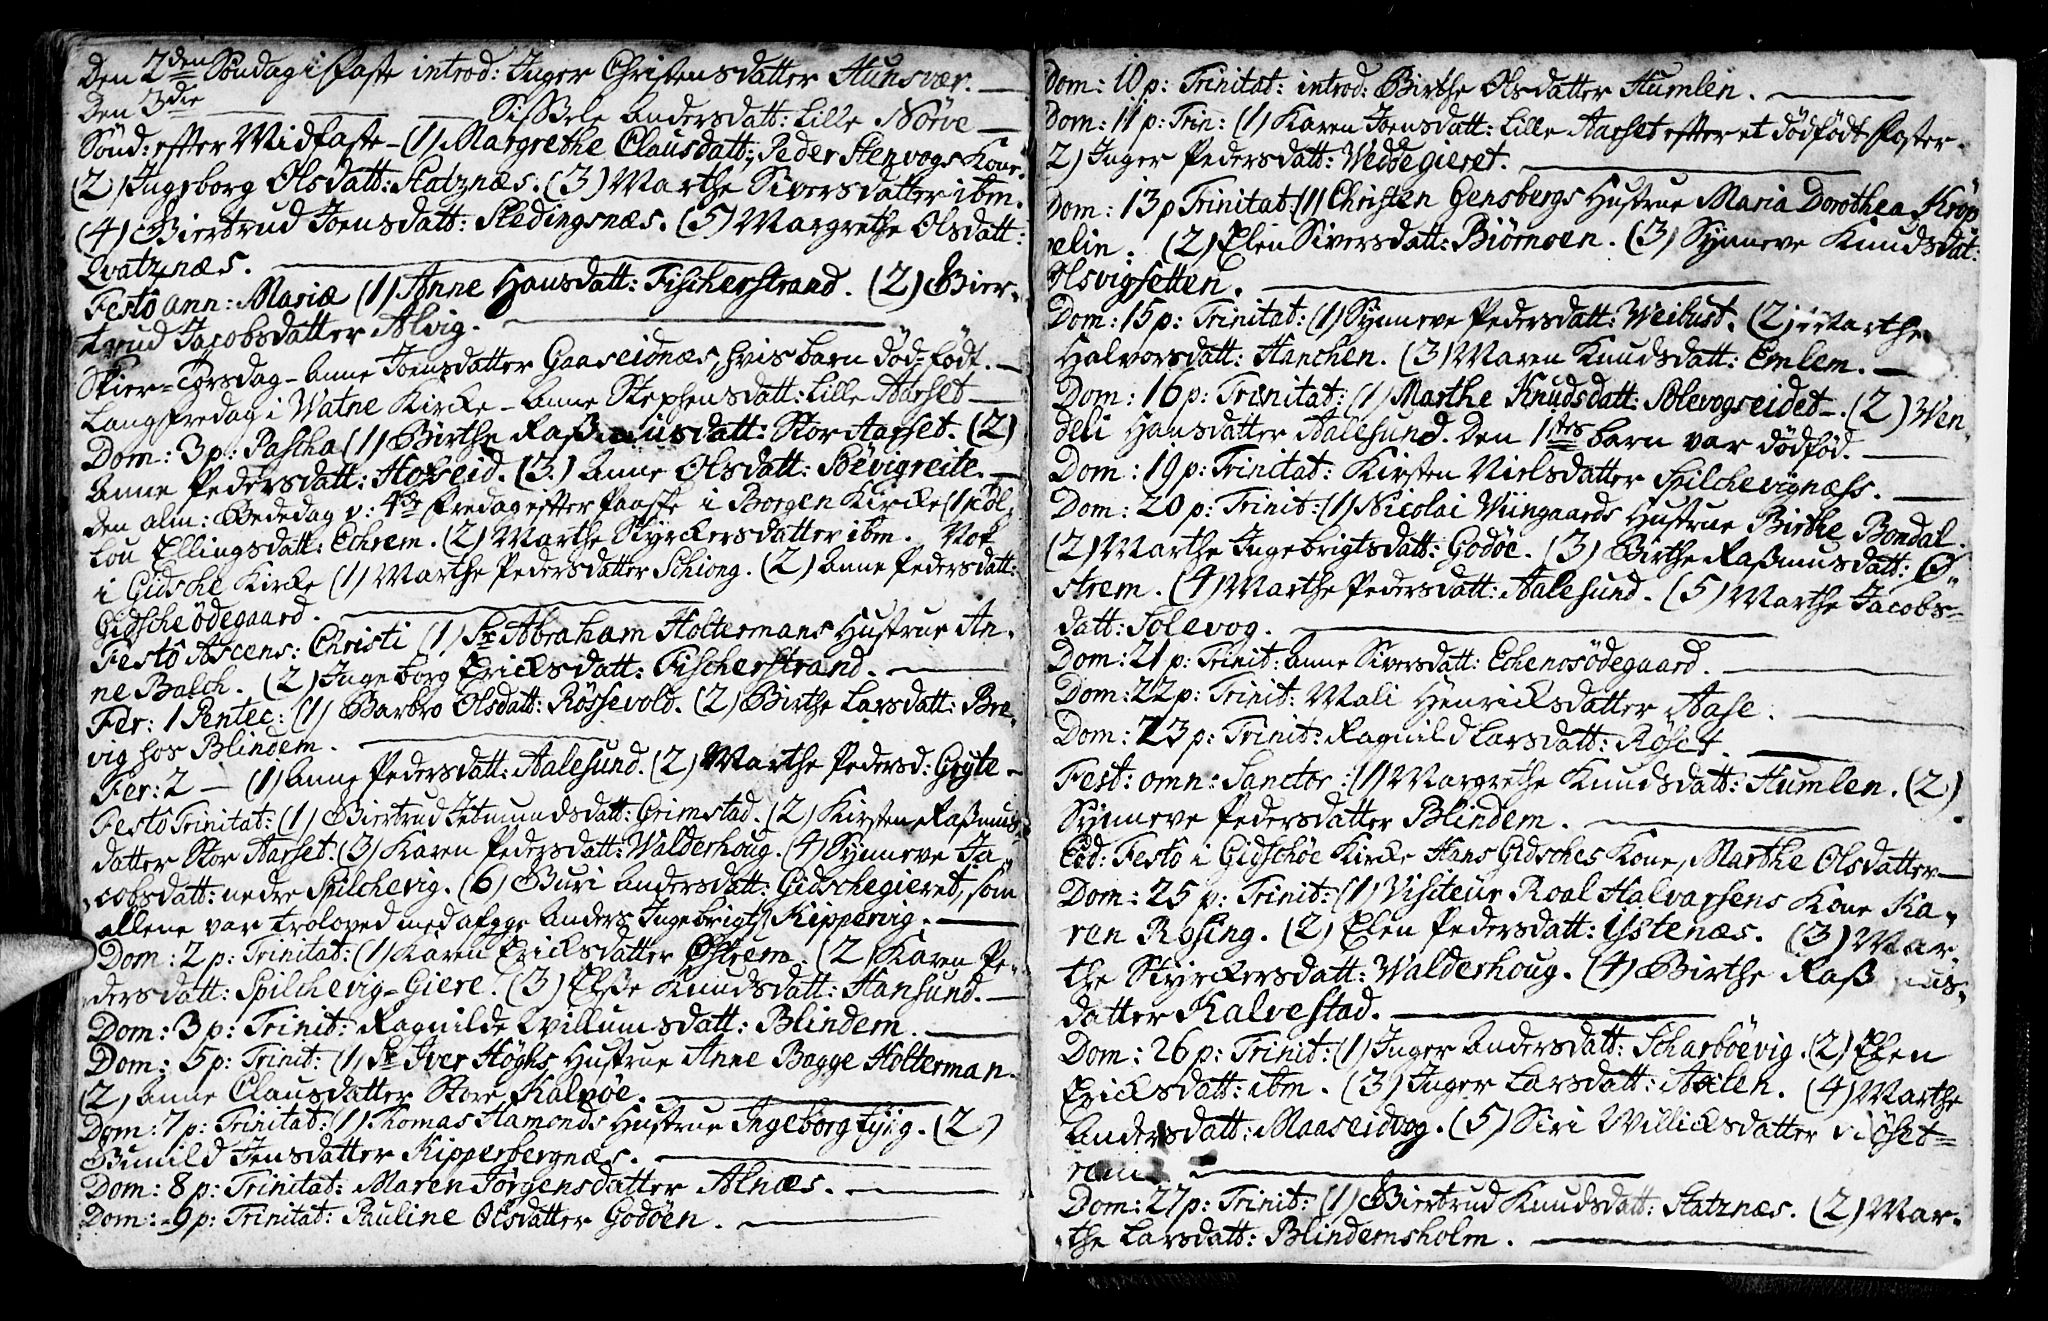 Den 2den Söndag i Faste introd: Inger Christensdatter Hunsvær.
Den 3die Sissele Andersdatt: Lille Nörve
Sönd: efter Midfaste - (1) Margrethe Clausdatt: Peder Stenvogs Kone.
(2) Ingeborg Olsdatt: Slatznæs. (3) Marthe Siversdatter ibm.
(4) Giertrud Joensdatt: Sledingsnæs. (5) Margrethe Olsdatt:
Qvatznæs.
Festo ann: Mariæ (1) Anne Hansdatt: Fischerstrand. (2) Gier-
trud Jacobsdatter Alvig.
Skier-Torsdag - Anne Joensdatter Gaaseidnæs, hvis barn död-födt.
Langfredag i Vatne Kircke - Anne Stephensdatt: Lille Aarset
Dom: 3 p: Pascha (1) Birthe Raßmusdatt: Stor Aarset. (2)
Anne Pedersdatt: Hofseid. (3.) Anne Olsdatt: Bövigreite.
Den alm: Bededag v: 4de Fredag efter Paaske i Borgen Kircke (1)
Ellingsdatt: Echrem. (2) Marthe Styrckersdatter ibm. Nok
i Gidsche Kircke (1) Marthe Pedersdatter Schiong. (2) Anne Pedersdatt:
Gidscheödegaard.
Festo Ascens: Christi (1) Sr Abraham Holtermans Hustrue An-
ne Balch. (2) Ingeborg Ericksdatt: Fischerstrand.
Fer: 1 Pentec: (1) Barbro Olsdatt: Rössevold. (2) Birthe Larsdatt: Bre-
vig hos Blindem.
Fer: 2 - (1) Anne Pedersdatt: Aalesund. (2) Marthe Pedersd: Gryte
Festo Trinitat: (1) Giertrud Jetmundsdatt: Grimstad. (2) Kirsten Raßmus-
datter Stor Aarset. (3) Karen Pedersdatt: Walderhoug. (4) Synneve Ja-
cobsdatt: nedre Spilchevig. (6) Guri Andersdatt: Gidschegieret, som
allene var troloved med afgge Anders Ingebrigts: Kippervig.
Dom: 2 p: Trinitat: (1) Karen Ericksdatter Østrem. (2) Karen Pe-
dersdatt: Spilchevig-Giere. (3) Elsse Knudsdatt: Hansund.
Dom: 3 p: Trinit: Ragnilde Willumsdatt: Blindem.
Dom: 5 p: Trinit: (1) Sr Iver Höghs Hustrue Anne Bagge Holterman.
(2) Anne Clausdatter Store Kalvöe.
Dom: 7 p: Trinitat: (1) Thomas Hamonds Hustrue Ingeborg Lyng. (2)
Gunild Jensdatter Kipperbergnæs.
Dom: 8 p: Trinitat: Maren Jörgensdatter Alnæs.
Dom: 9 p: Trinitat: Pauline Olsdatter Godöen.
Dom: 10 p: Trinitat: introd: Birthe Olsdatter Humlen.
Dom: 11 p: Trin: (1) Karen Joensdatt: Lille Aarset efter et dödfödt Foster.
2) Inger Pedersdatt: Weddegieret.
Dom: 13 p Trinitat: (1) Christen Gensbergs Hustrue Maria Dorothea Kröp
pelin. (2) Elen Siversdatt: Biörnoen. (3) Synneve Knudsdat:
Olsvigsetten.
Dom: 15 p: Trinitat: (1) Synneve Pedersdatt: Weibust. (2) Marthe
Halvorsdatt: Hanchen. (3) Maren Knudsdatt: Emlem.
Dom: 16 p: Trinitat: (1) Marthe Knudsdatt: Blevogseidet. (2) Wen-
deli Hansdatter Aalesund. Den 1stes barn var dödfød.
Dom: 19 p: Trinitat: Kirsten Nielsdatter Spilchevignæss.
Dom: 20 p: Trinit: (1) Nicolai Wiingaards Hustrue Birthe Bondal.
(2) Marthe Ingebrigtsdatt: Godöe. (3) Birthe Raßmusdatt: Ø-
strem. (4) Marthe Pedersdatt: Aalesund. (5) Marthe Jacobs-
datt: Solevog.
Dom: 21 p: Trinit: Anne Siversdatt: Echenosödegaard.
Dom: 22 p: Trinit: Mali Henricksdatter Aase.
Dom: 23 p: Trinit: Ragnild Larsdatt: Röset.
Fest: omn: Sanctor: (1) Margrethe Knudsdatt: Humlen. (2)
Synneve Pedersdatter Blindem.
Eod: Festo i Gidschöe Kircke Hans Gidsches Kone, Marthe Olsdatter
Dom: 25 p: Trinit: (1) Visiteur Roal Halvarsens Kone Ka-
ren Rosing. (2) Elen Pedersdatt: Ystenæs. (3) Mar-
the Styrckersdatt: Walderhoug. (4) Birthe Raßmus-
datter Kalvestad.
Dom: 26 p: Trinit: (1) Inger Andersdatt: Scharböevig. (2) Elen
Ericksdatt: ibm. (3) Inger Larsdatt: Axlen. (4) Marthe
Andersdatt: Maaseidvog. (5) Siri Willicksdatter
Dom: 27 p: Trinit: (1) Giertrud Knudsdatt: Slatznæs. (2) Mar-
the Larsdatt: Blindemsholm.